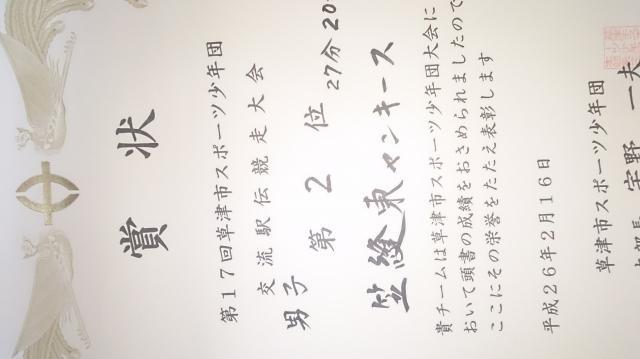 賞状
第17回草津市スポーツ少年団
交流駅伝競走大会
男子 第2位 27分20
笠縫東ヤンキース
貴チームは草津市スポーツ少年団大会に
おいて頭書の成績をおさめられましたので
ここにその栄誉をたたえ表彰します
平成26年2月16日
草津市スポーツ少年団
本部長 宇野 一夫